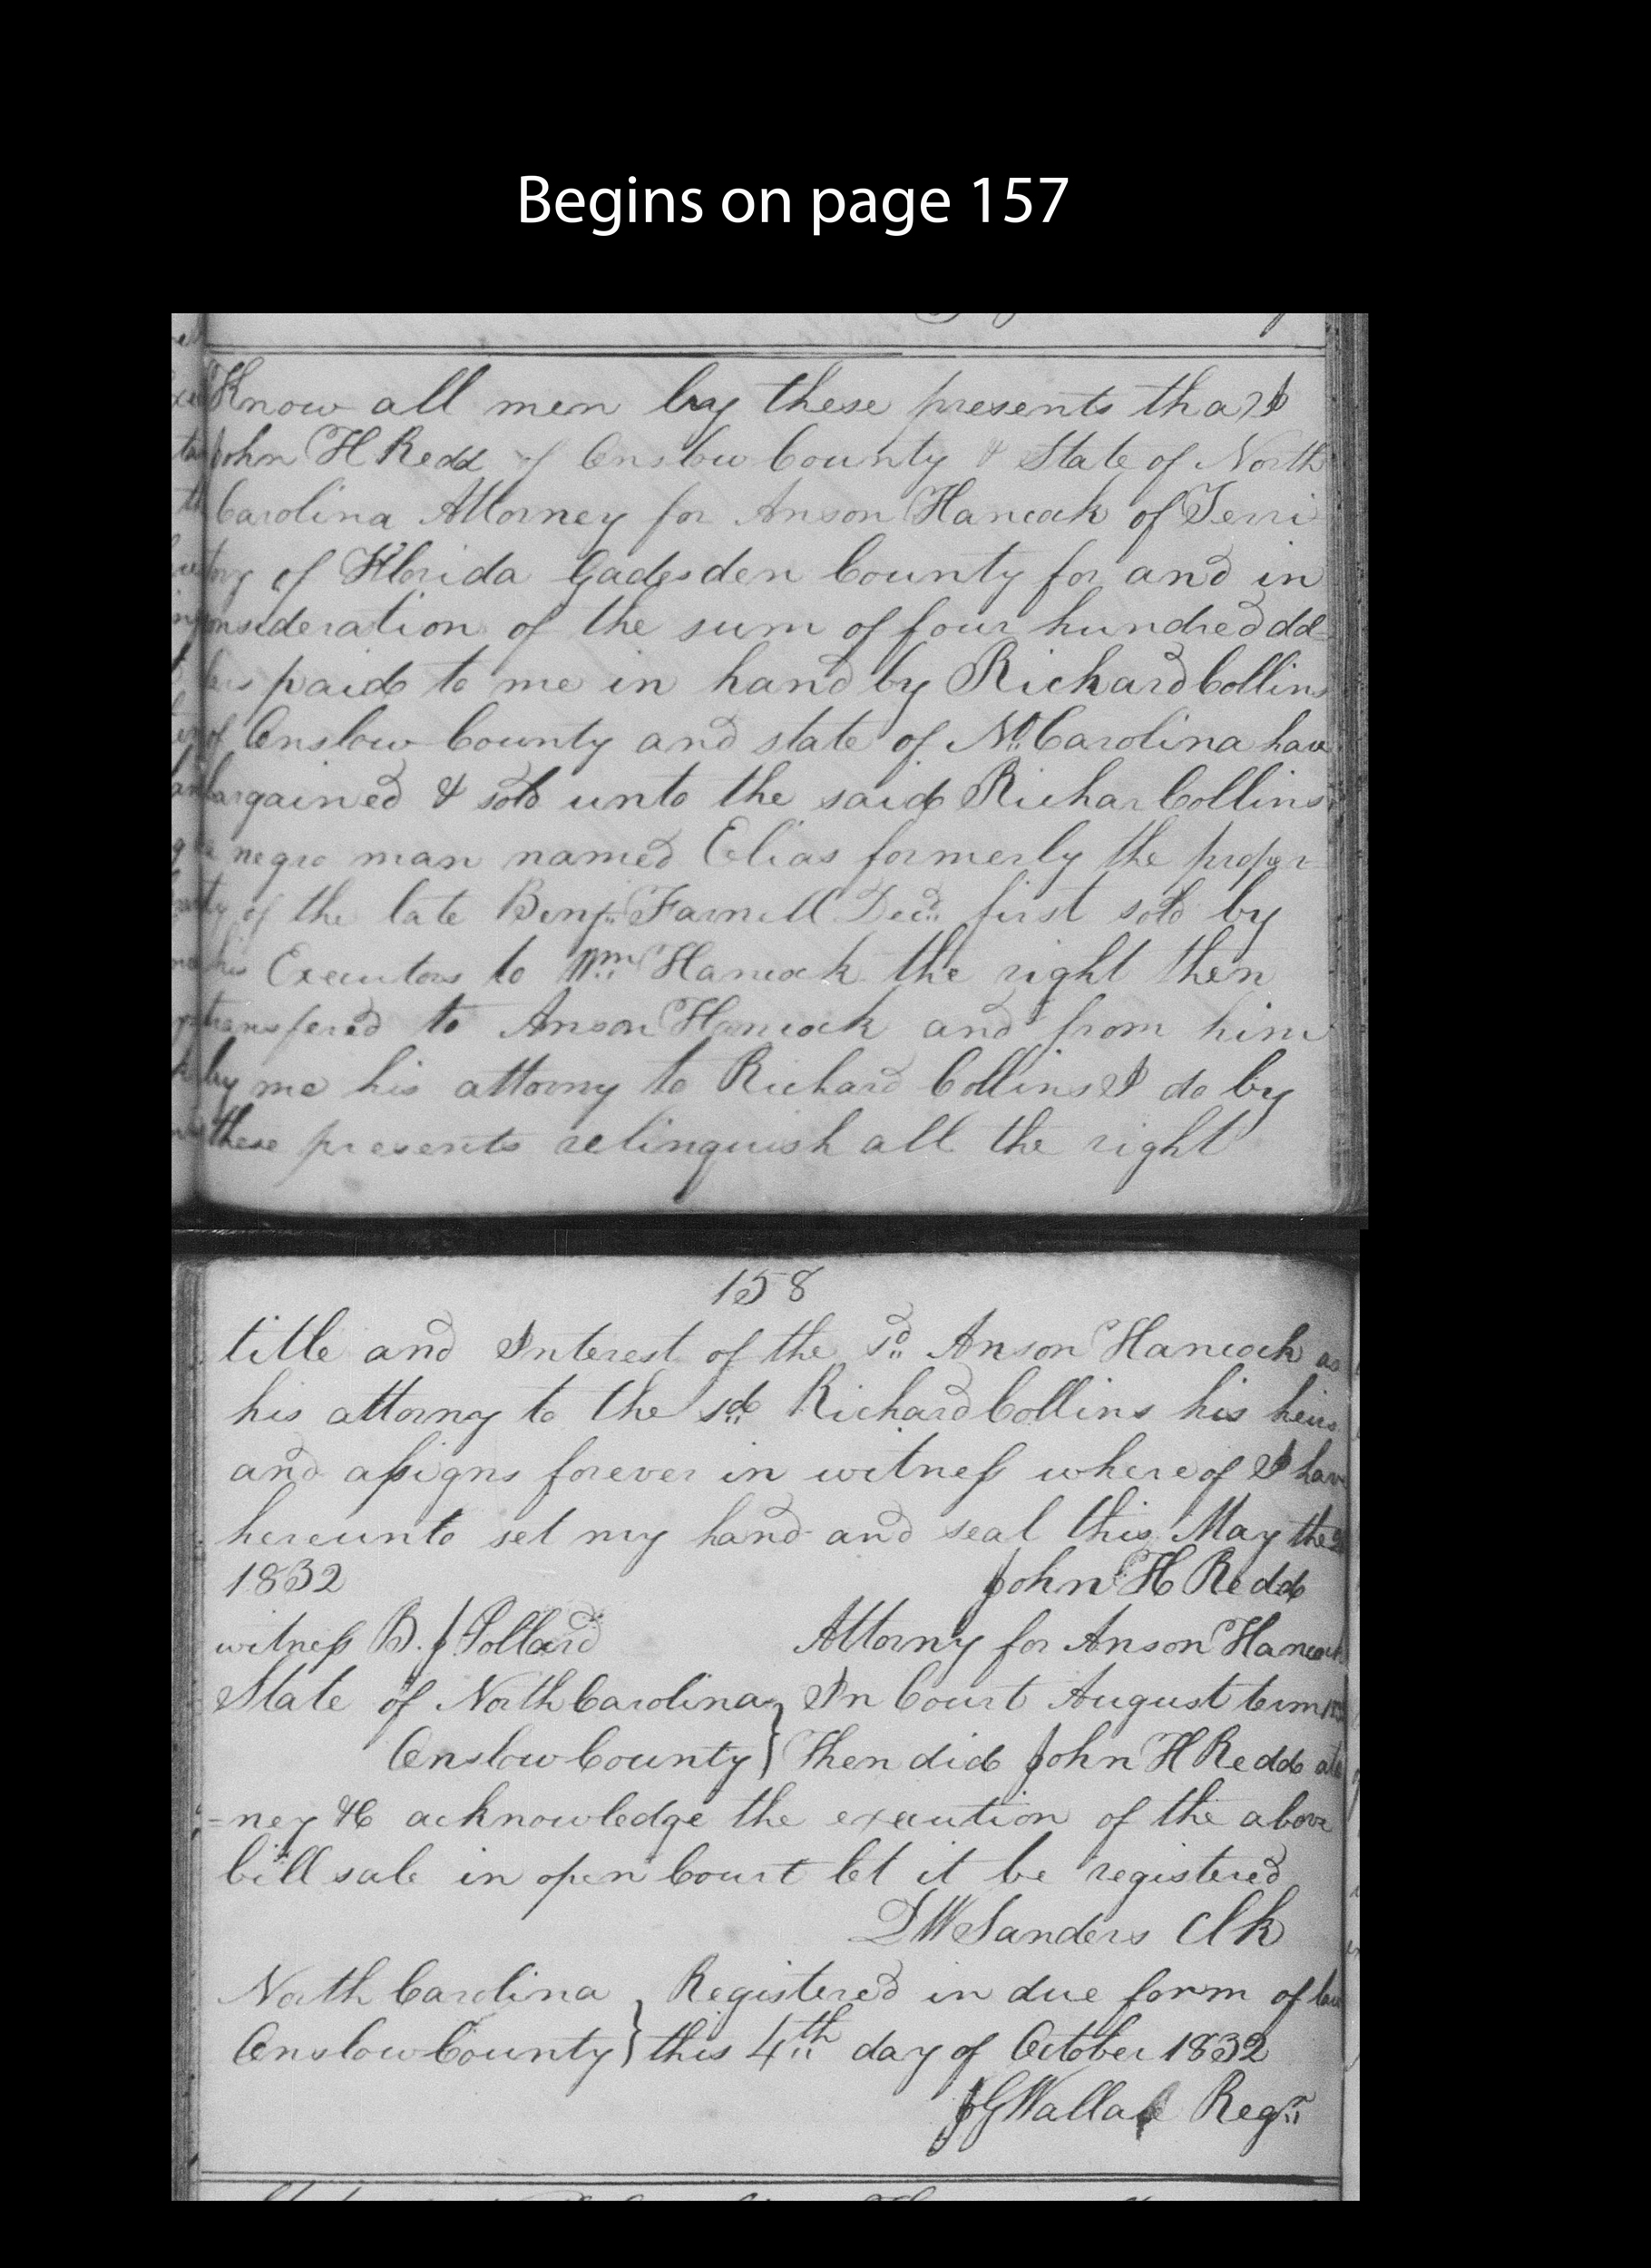 Begins on page 157
Know all men by these presents that I
John H Redd of Onslow County & State of North
Carolina Attorney for Anson Hancock of Terri
tory of Florida Gadsden County for and in
consideration of the sum of four hundred dol
lers paid to me in hand by Richard Collins
of Onslow County and state of No. Carolina have
bargained & sold unto the said Richar Collins
a negro man named Elias formerly the proper
ty of the late Benj. Farnell Decd. first sold by
his Executors to Wm. Hancock the right then
transfered to Anson Hancock and from him
by me his attorny to Richard Collins I do by
these presents relinquish all the right
158
title and Interest of the sd. Anson Hancock as
his attorny to the sd. Richard Collins his heirs
and assigns forever in witness where of I have
hereunto set my hand and seal this May the
1832 John H Redd
witness B. J Pollard Attorny for Anson Hancock
State of North Carolina } In Court August term
Onslow County } Then did John H Redd
-ney &C acknowledge the execution of the above
bill sale in open Court let it be registered
D W Sanders Clk
North Carolina } Registered in due form of law
Onslow County } this 4th day of October 1832
J G Wallace Regr.